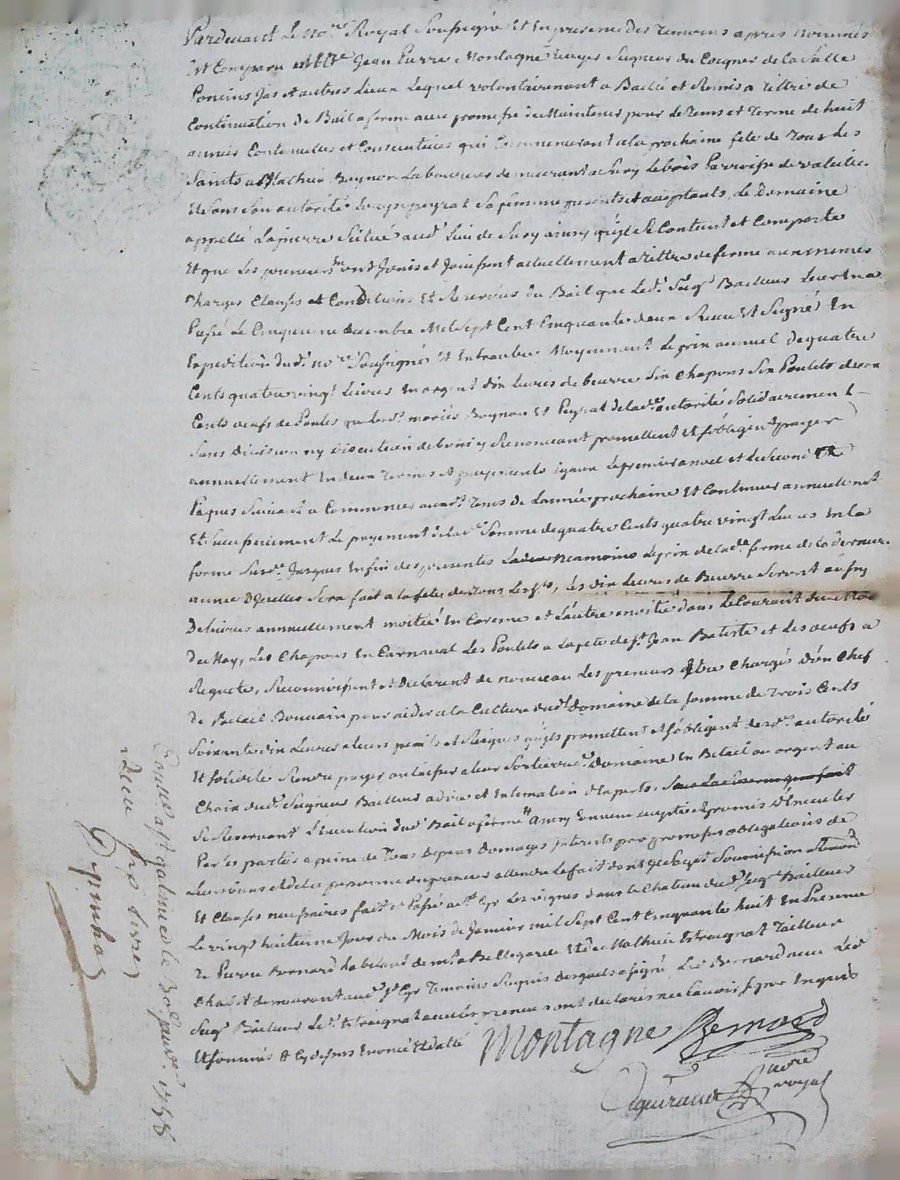 Pardevant Le No.re Royal Soussigné Et En presence des Temoins apres Nommés
Est Comparu Jean Pierre Montagne Ecuyer Seigneur du Coigner de la Salle
Poncins Jas et autres Lieux Lequel volontairement a Baillé et Remis a tittre de
Continuation de Bail a ferme avec promesse de Maintenir pour le Tems et Terme de huit
années Continuelles et Consecutives qui Commenceront a la prochaine fete de Tous les
Saints a Mathieu Boynon Laboureur demeurant a Sury le bois Parroisse de valeille
Et sous son autorité peyrat Sa femme presents et acceptants, Le Domaine
appellé Lapierre Scitué aud.t Lieu de Sury ainsy qu'il se Contient et Comporte
Et que Les preneurs en ont Jouis et Jouissent actuellement a tittre de ferme aux memes
Charges Clauses et Conditions Et Reserves du Bail que Led.t Seig.r Bailleur Leur en a
Passé Le Cinquieme decembre Mil Sept Cent Cinquante deux Receu Et Signé En
Expedition dud.t no.re Soussigné Et En outre Moyennant Le prix annuel de quatre
Cents quatre vingt Livres En argent dix Livres de beurre Six Chapons Six Poulets deux
Cents oeufs de Poules que Lesd.ts mariés Boynon Et Peyrat de lad.te autorité Solidairement
Sans Division ny discution de biens y Renonceant promettent Et s'obligent payer
annuellement En deux Termes Et payements Egaux Le premier a noel et Le Second a
Paques Suivant a Commencer auxd.ts Termes de L'année prochaine Et Continuer annuellem.t
Et Successivement Le payement de lad.te Somme de quatre Cents quatre vingt Livres En la
forme Susd.te Jusques Enfin des presentes neamoins Le prix de lad.te ferme de la derniere
année D'ycelles Sera fait a la fete de Tous Les S.ts, Les dix Livres de Beurre Seront aussy
Delivrés annuellement moitié En Careme et L'autre moitié dans Le Courant du Mois
de May, Les Chapons En Carnaval Les Poulets a La fete de S.t Jean Batiste et Les oeufs a
Requete, Reconnoissent et Declarent de nouveau Les preneurs Etre Chargés d'un Chef
de Betail Bouvain pour aider a la Culture dud.t Domaine de la Somme de Trois Cents
Soixante dix Livres a leurs perils et Risques qu'ils promettent et s'obligent de lad.te autorité
Et Solidité Rendre payer ou laisser a leur Sortie aud.t Domaine En Betail ou argent au
Choix dud.t Seigneur Bailleur
Se Reservant L'Execution dud.t Bail a ferme Ainsy Convenu accepté et promis d'Executer
Par les parties a peine de Tous Depens Domages Interets par promesses obligations de
Leurs biens
Et Clauses necessaires fait Et Passé a S.t Cyr Les vignes dans le Chateau dud.t Seig.r Bailleur
Le vingt huitieme Jour du Mois de Janvier mil Sept Cent Cinquante huit En Presence
de Pierre Bernard habitant de Bellegarde Et de Mathieu Estraignat Tailleur
d'habit demeurant aud.t S.t Cyr Temoins Requis Lesquels a Signé Led.t Bernard avec Led.t
Seig.r Bailleur Led.t Estraignat avec Les preneurs ont declarés ne Scavoir signer Enquis
Et Sommés Et
Montagne Bernard
no.re royal
Controllé a S.t galmier le 30.e janv.r 1758
Receu six livres